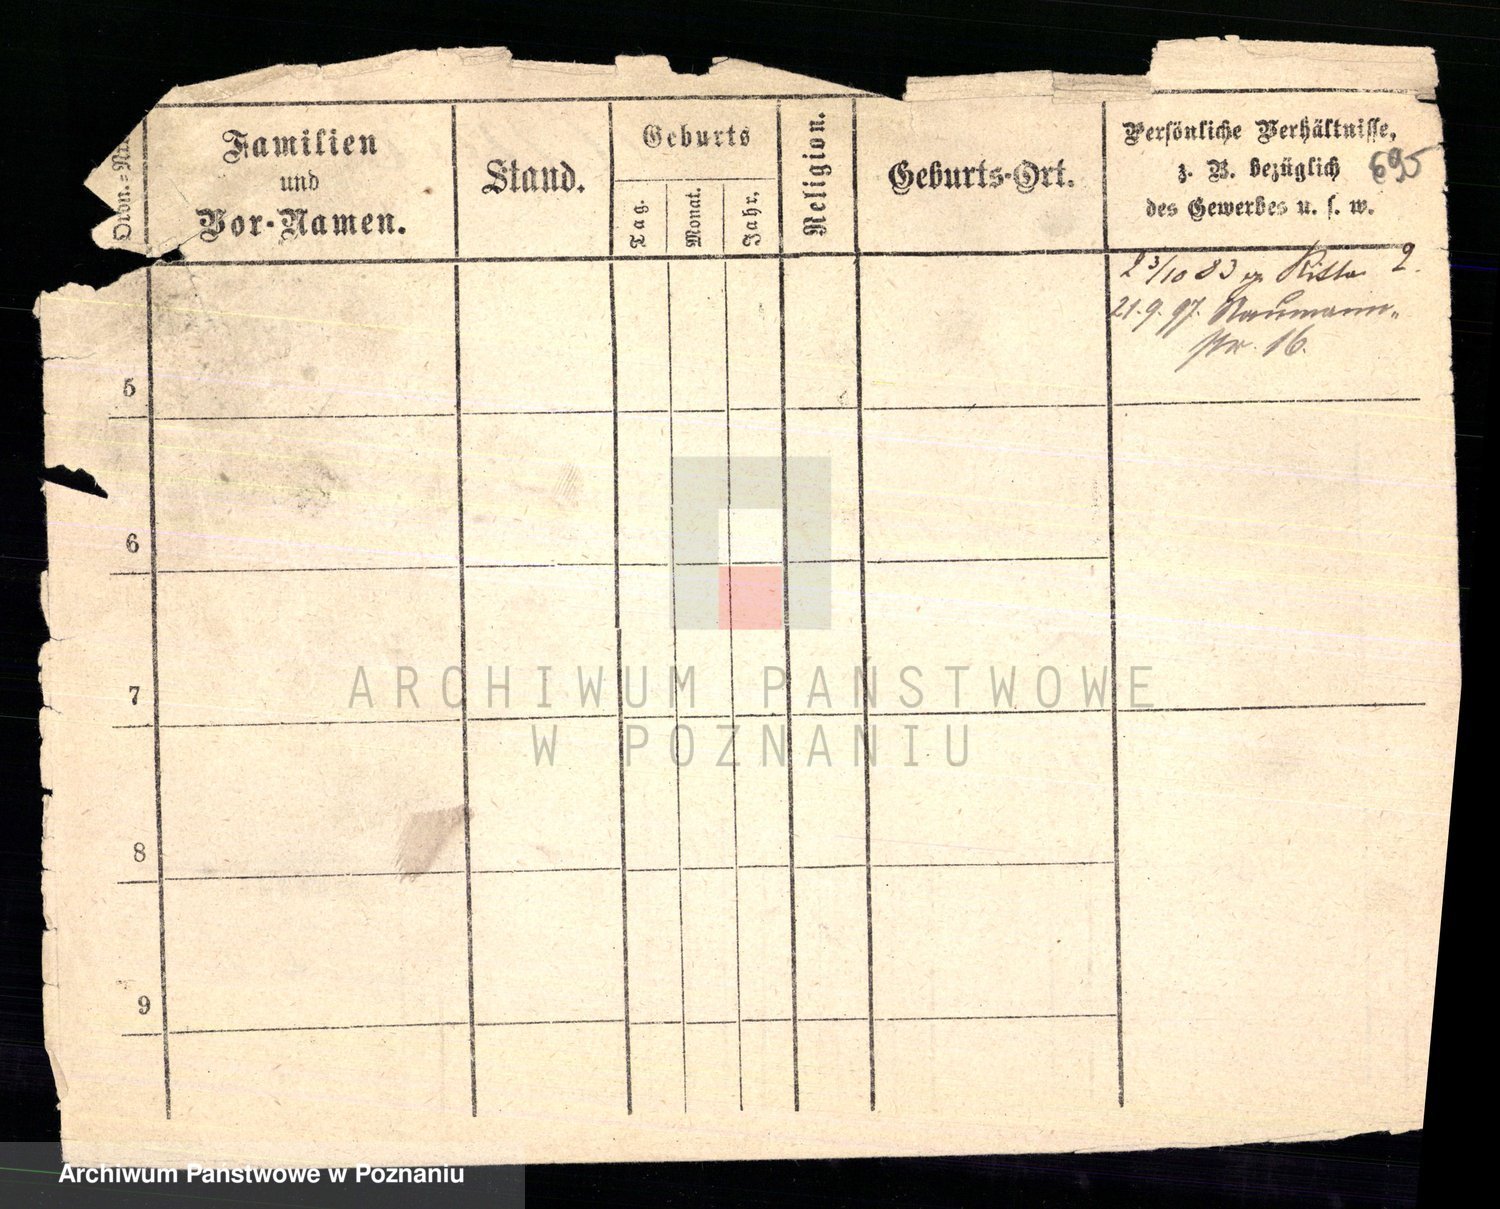 Ordn.-Nr.
Familien
und
Vor-Namen.
Stand.
Geburts
Tag.
Monat.
Jahr.
Religion.
Geburts-Ort.
Persönliche Verhältnisse,
z. B. bezüglich
des Gewerbes u. s. w.
695
2 3/10 83 Ritter 2.
21.9.97. Naumann-
str. 16.
5
6
7
8
9
ARCHIWUM PAŃSTWOWE
W POZNANIU
Archiwum Państwowe w Poznaniu